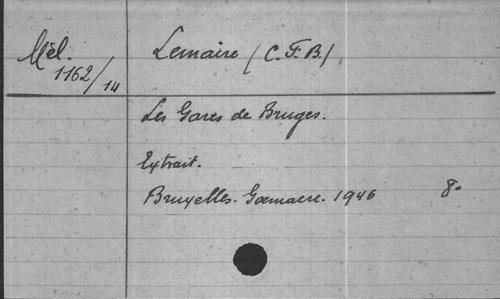 Mél.
1162/14
Lemaire (C. F. B.)
Les Gares de Bruges.
Extrait.
Bruxelles. Goemaere. 1946 8°